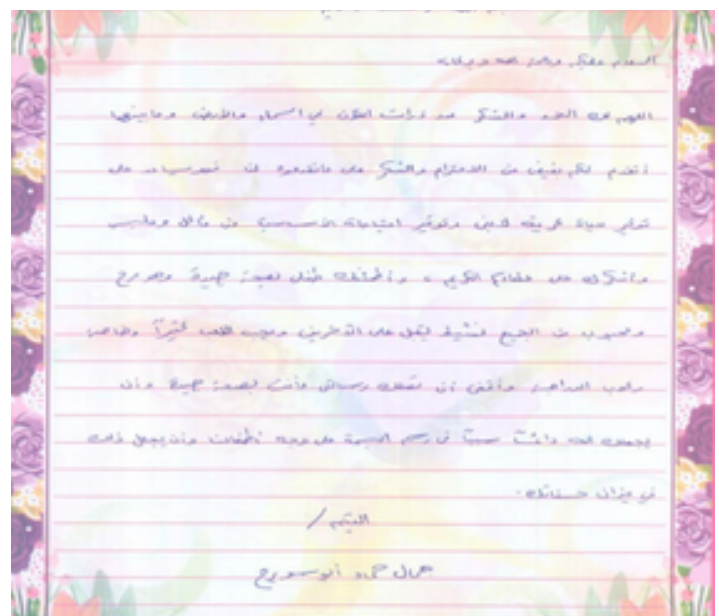 السلام عليكم ورحمة الله وبركاته
اللهم لك الحمد والشكر عدد ذرات الكون في السماء والأرض وما بينهما
أتقدم لكم بفيض من الاحترام والشكر على ما تقدموه لنا من على
توفير حياة كريمة لابني وتوفير احتياجاته الأساسية من مأكل وملبس
وأشكرك على عطائكم الكريم ، وأطمئنك طفلي بصحة جيدة وهو مرح
ومحبوب من الجميع نشيط يقبل على الآخرين ويحب اللعب كثيراً وخاصة
ركوب الدراجة وأتمنى أن تصلك رسالتي وأنت بصحة جيدة وأن
يجعلك الله دائماً سبباً في رسم البسمة على وجه أطفالنا وأن يجعل ذلك
في ميزان حسناتك .
اليتيم /
جمال حماد أبو سويرح